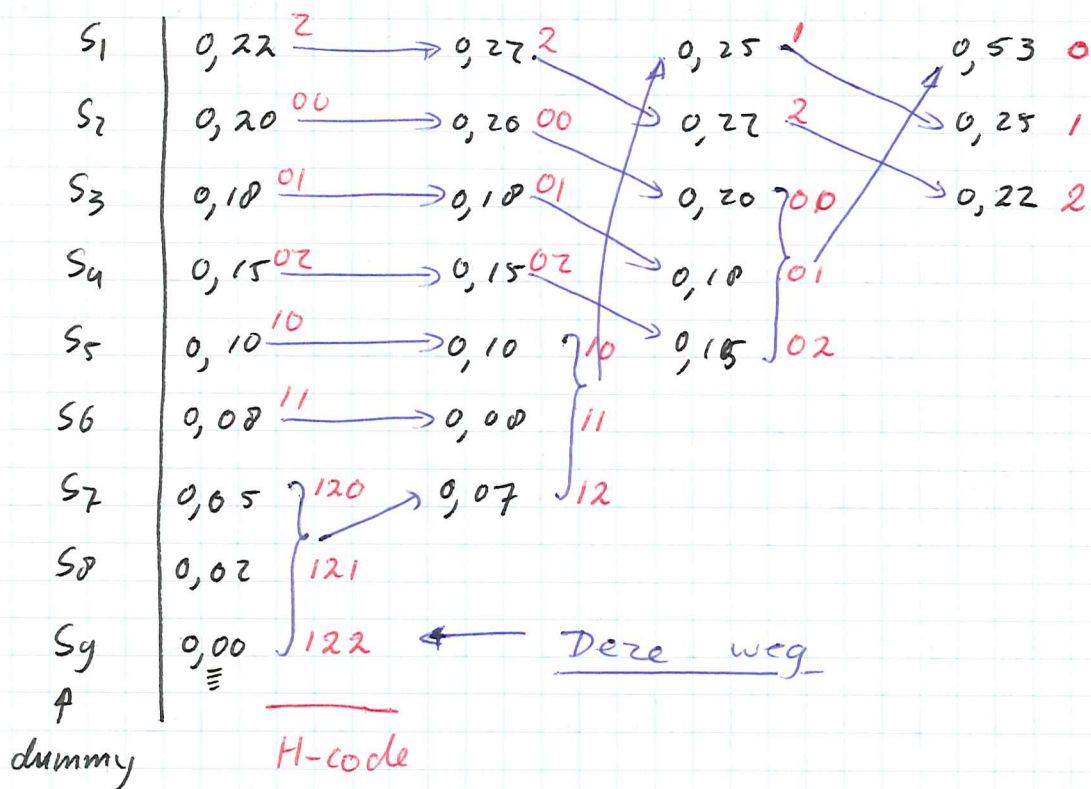 S1 0,22 2 0,22 2 0,25 1 0,53 0
S2 0,20 00 0,20 00 0,22 2 0,25 1
S3 0,18 01 0,18 01 0,20 00 0,22 2
S4 0,15 02 0,15 02 0,18 01
S5 0,10 10 0,10 10 0,15 02
S6 0,08 11 0,08 11
S7 0,05 120 0,07 12
S8 0,02 121
S9 0,00 122 Deze weg
dummy H-code